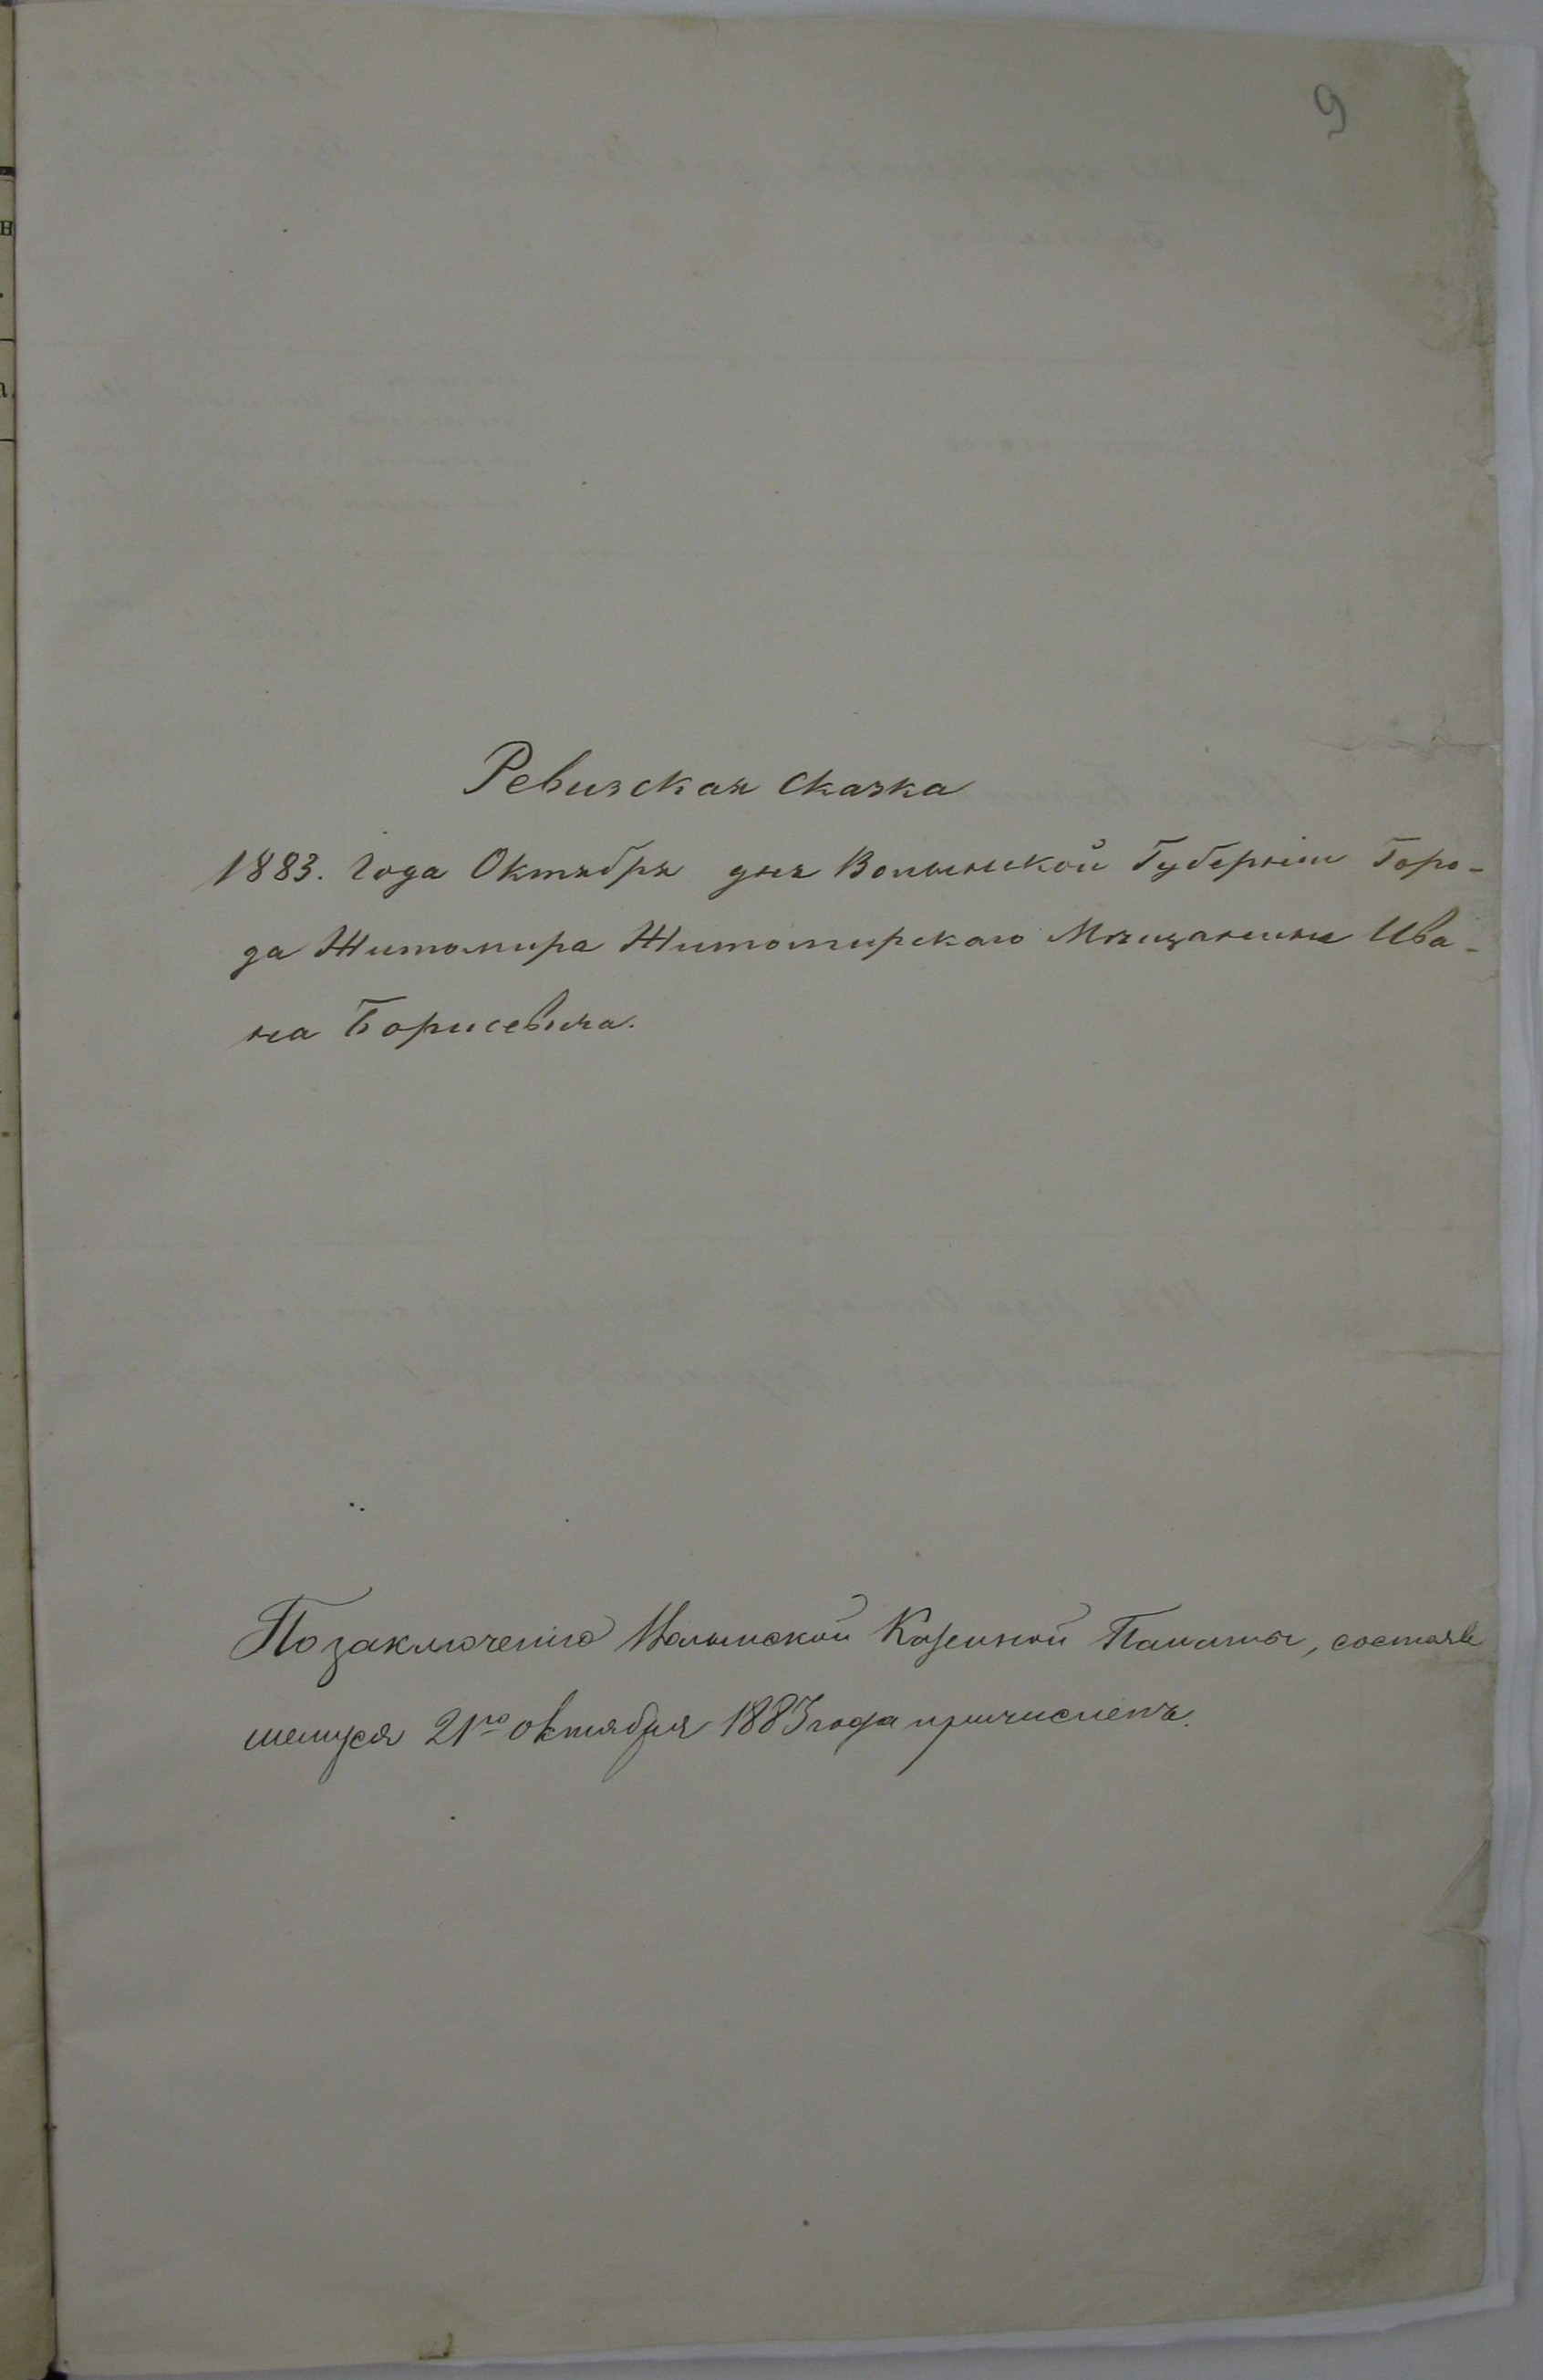 9
Ревизская Сказка
1883. Года Октября дня Волынской Губерніи Горо-
да Житомира Житомирскаго Мѣщанина Ива-
на Борисевича.
По заключенію Волынской Казенной Палаты, состояв
шемуся 21го октября 1883 года причисленъ.